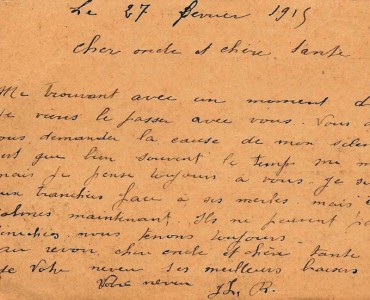 Le 27 fevrier 1915
cher oncle et chère tante
Me trouvant avec un moment d
je viens le passer avec vous. Vous
demander la cause de mon silen
que bien souvent le temps me m
mais je pense toujours à vous je su
tranchées face à ses merles mais
calmes maintenant. Ils ne peuvent
nous tenons toujours.
au revoir cher oncle et chère tante
de votre neveu ses meilleurs baisers
Votre neveu